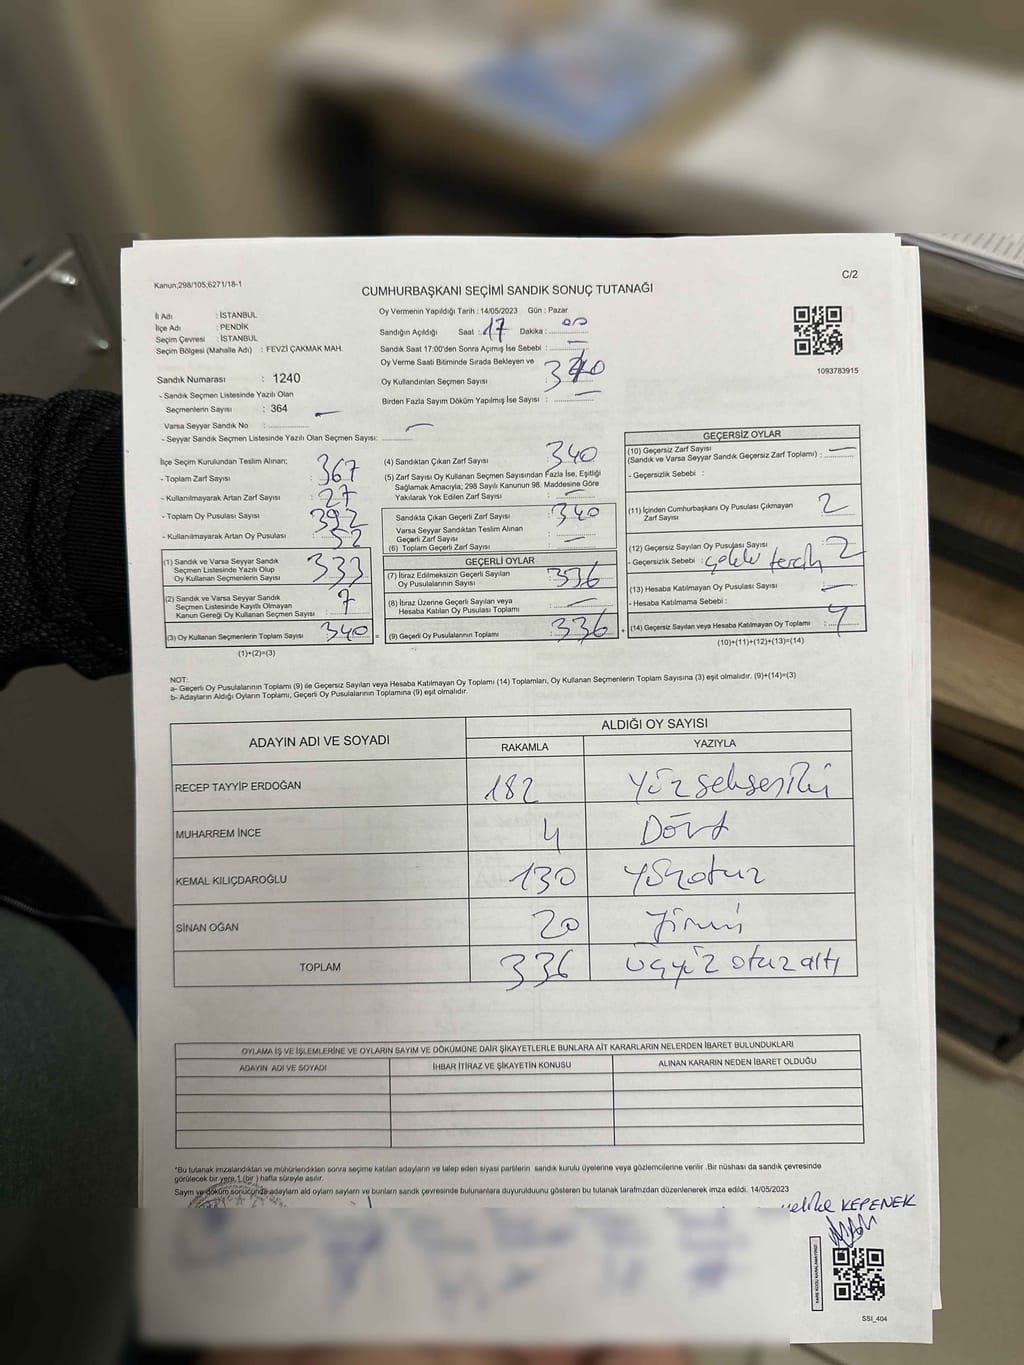 Kanun;298/105;6271/18-1
C/2
CUMHURBAŞKANI SEÇİMİ SANDIK SONUÇ TUTANAĞI
İl Adı : İSTANBUL
İlçe Adı : PENDİK
Seçim Çevresi : İSTANBUL
Seçim Bölgesi (Mahalle Adı) : FEVZİ ÇAKMAK MAH.
Oy Vermenin Yapıldığı Tarih : 14/05/2023 Gün : Pazar
Sandığın Açıldığı Saat : 17 Dakika : 00
Sandık Saat 17:00'den Sonra Açımış İse Sebebi : —
Oy Verme Saati Bitiminde Sırada Bekleyen ve
Oy Kullandırılan Seçmen Sayısı 340
Birden Fazla Sayım Döküm Yapılmış İse Sayısı : —
1093783915
Sandık Numarası : 1240
- Sandık Seçmen Listesinde Yazılı Olan
Seçmenlerin Sayısı : 364
Varsa Seyyar Sandık No : —
- Seyyar Sandık Seçmen Listesinde Yazılı Olan Seçmen Sayısı: —
İlçe Seçim Kurulundan Teslim Alınan;
- Toplam Zarf Sayısı : 367
- Kullanılmayarak Artan Zarf Sayısı : 27
- Toplam Oy Pusulası Sayısı : 392
- Kullanılmayarak Artan Oy Pusulası : 52
(1) Sandık ve Varsa Seyyar Sandık
Seçmen Listesinde Yazılı Olup
Oy Kullanan Seçmenlerin Sayısı : 333
(2) Sandık ve Varsa Seyyar Sandık
Seçmen Listesinde Kayıtlı Olmayan
Kanun Gereği Oy Kullanan Seçmen Sayısı : 7
(3) Oy Kullanan Seçmenlerin Toplam Sayısı : 340 =
(1)+(2)=(3)
(4) Sandıktan Çıkan Zarf Sayısı : 340
(5) Zarf Sayısı Oy Kullanan Seçmen Sayısından Fazla İse, Eşitliği
Sağlamak Amacıyla; 298 Sayılı Kanunun 98. Maddesine Göre
Yakılarak Yok Edilen Zarf Sayısı : —
Sandıkta Çıkan Geçerli Zarf Sayısı : 340
Varsa Seyyar Sandıktan Teslim Alınan
Geçerli Zarf Sayısı : —
(6) Toplam Geçerli Zarf Sayısı :
GEÇERLİ OYLAR
(7) İtiraz Edilmeksizin Geçerli Sayılan
Oy Pusulalarının Sayısı : 336
(8) İtiraz Üzerine Geçerli Sayılan veya
Hesaba Katılan Oy Pusulası Toplamı : —
(9) Geçerli Oy Pusulalarının Toplamı : 336 +
GEÇERSİZ OYLAR
(10) Geçersiz Zarf Sayısı
(Sandık ve Varsa Seyyar Sandık Geçersiz Zarf Toplamı) : —
- Geçersizlik Sebebi :
(11) İçinden Cumhurbaşkanı Oy Pusulası Çıkmayan
Zarf Sayısı 2
(12) Geçersiz Sayılan Oy Pusulası Sayısı : 2
- Geçersizlik Sebebi : tercih
(13) Hesaba Katılmayan Oy Pusulası Sayısı : —
- Hesaba Katılmama Sebebi :
(14) Geçersiz Sayılan veya Hesaba Katılmayan Oy Toplamı : 4
(10)+(11)+(12)+(13)=(14)
NOT:
a- Geçerli Oy Pusulalarının Toplamı (9) ile Geçersiz Sayılan veya Hesaba Katılmayan Oy Toplamı (14) Toplamları, Oy Kullanan Seçmenlerin Toplam Sayısına (3) eşit olmalıdır. (9)+(14)=(3)
b- Adayların Aldığı Oyların Toplamı, Geçerli Oy Pusulalarının Toplamına (9) eşit olmalıdır.
ADAYIN ADI VE SOYADI
ALDIĞI OY SAYISI
RAKAMLA YAZIYLA
RECEP TAYYİP ERDOĞAN 182 Yüzseksen iki
MUHARREM İNCE 4 Dört
KEMAL KILIÇDAROĞLU 130 Yüzotuz
SİNAN OĞAN 20 Yirmi
TOPLAM 336 üçyüz otuz altı
OYLAMA İŞ VE İŞLEMLERİNE VE OYLARIN SAYIM VE DÖKÜMÜNE DAİR ŞİKAYETLERLE BUNLARA AİT KARARLARIN NELERDEN İBARET BULUNDUKLARI
ADAYIN ADI VE SOYADI İHBAR İTİRAZ VE ŞİKAYETİN KONUSU ALINAN KARARIN NEDEN İBARET OLDUĞU
*Bu tutanak imzalandıktan ve mühürlendikten sonra seçime katılan adayların ve talep eden siyasi partilerin sandık kurulu üyelerine veya gözlemcilerine verilir .Bir nüshası da sandık çevresinde
görülecek bir yere 1 (bir ) hafta süreyle asılır.
Sayım ve döküm sonucunda adayların ald oyların sayların ve bunların sandık çevresinde bulunanlara duyurulduunu gösteren bu tutanak tarafmzdan düzenlenerek imza edildi. 14/05/2023
KEPENEK
SSI_404